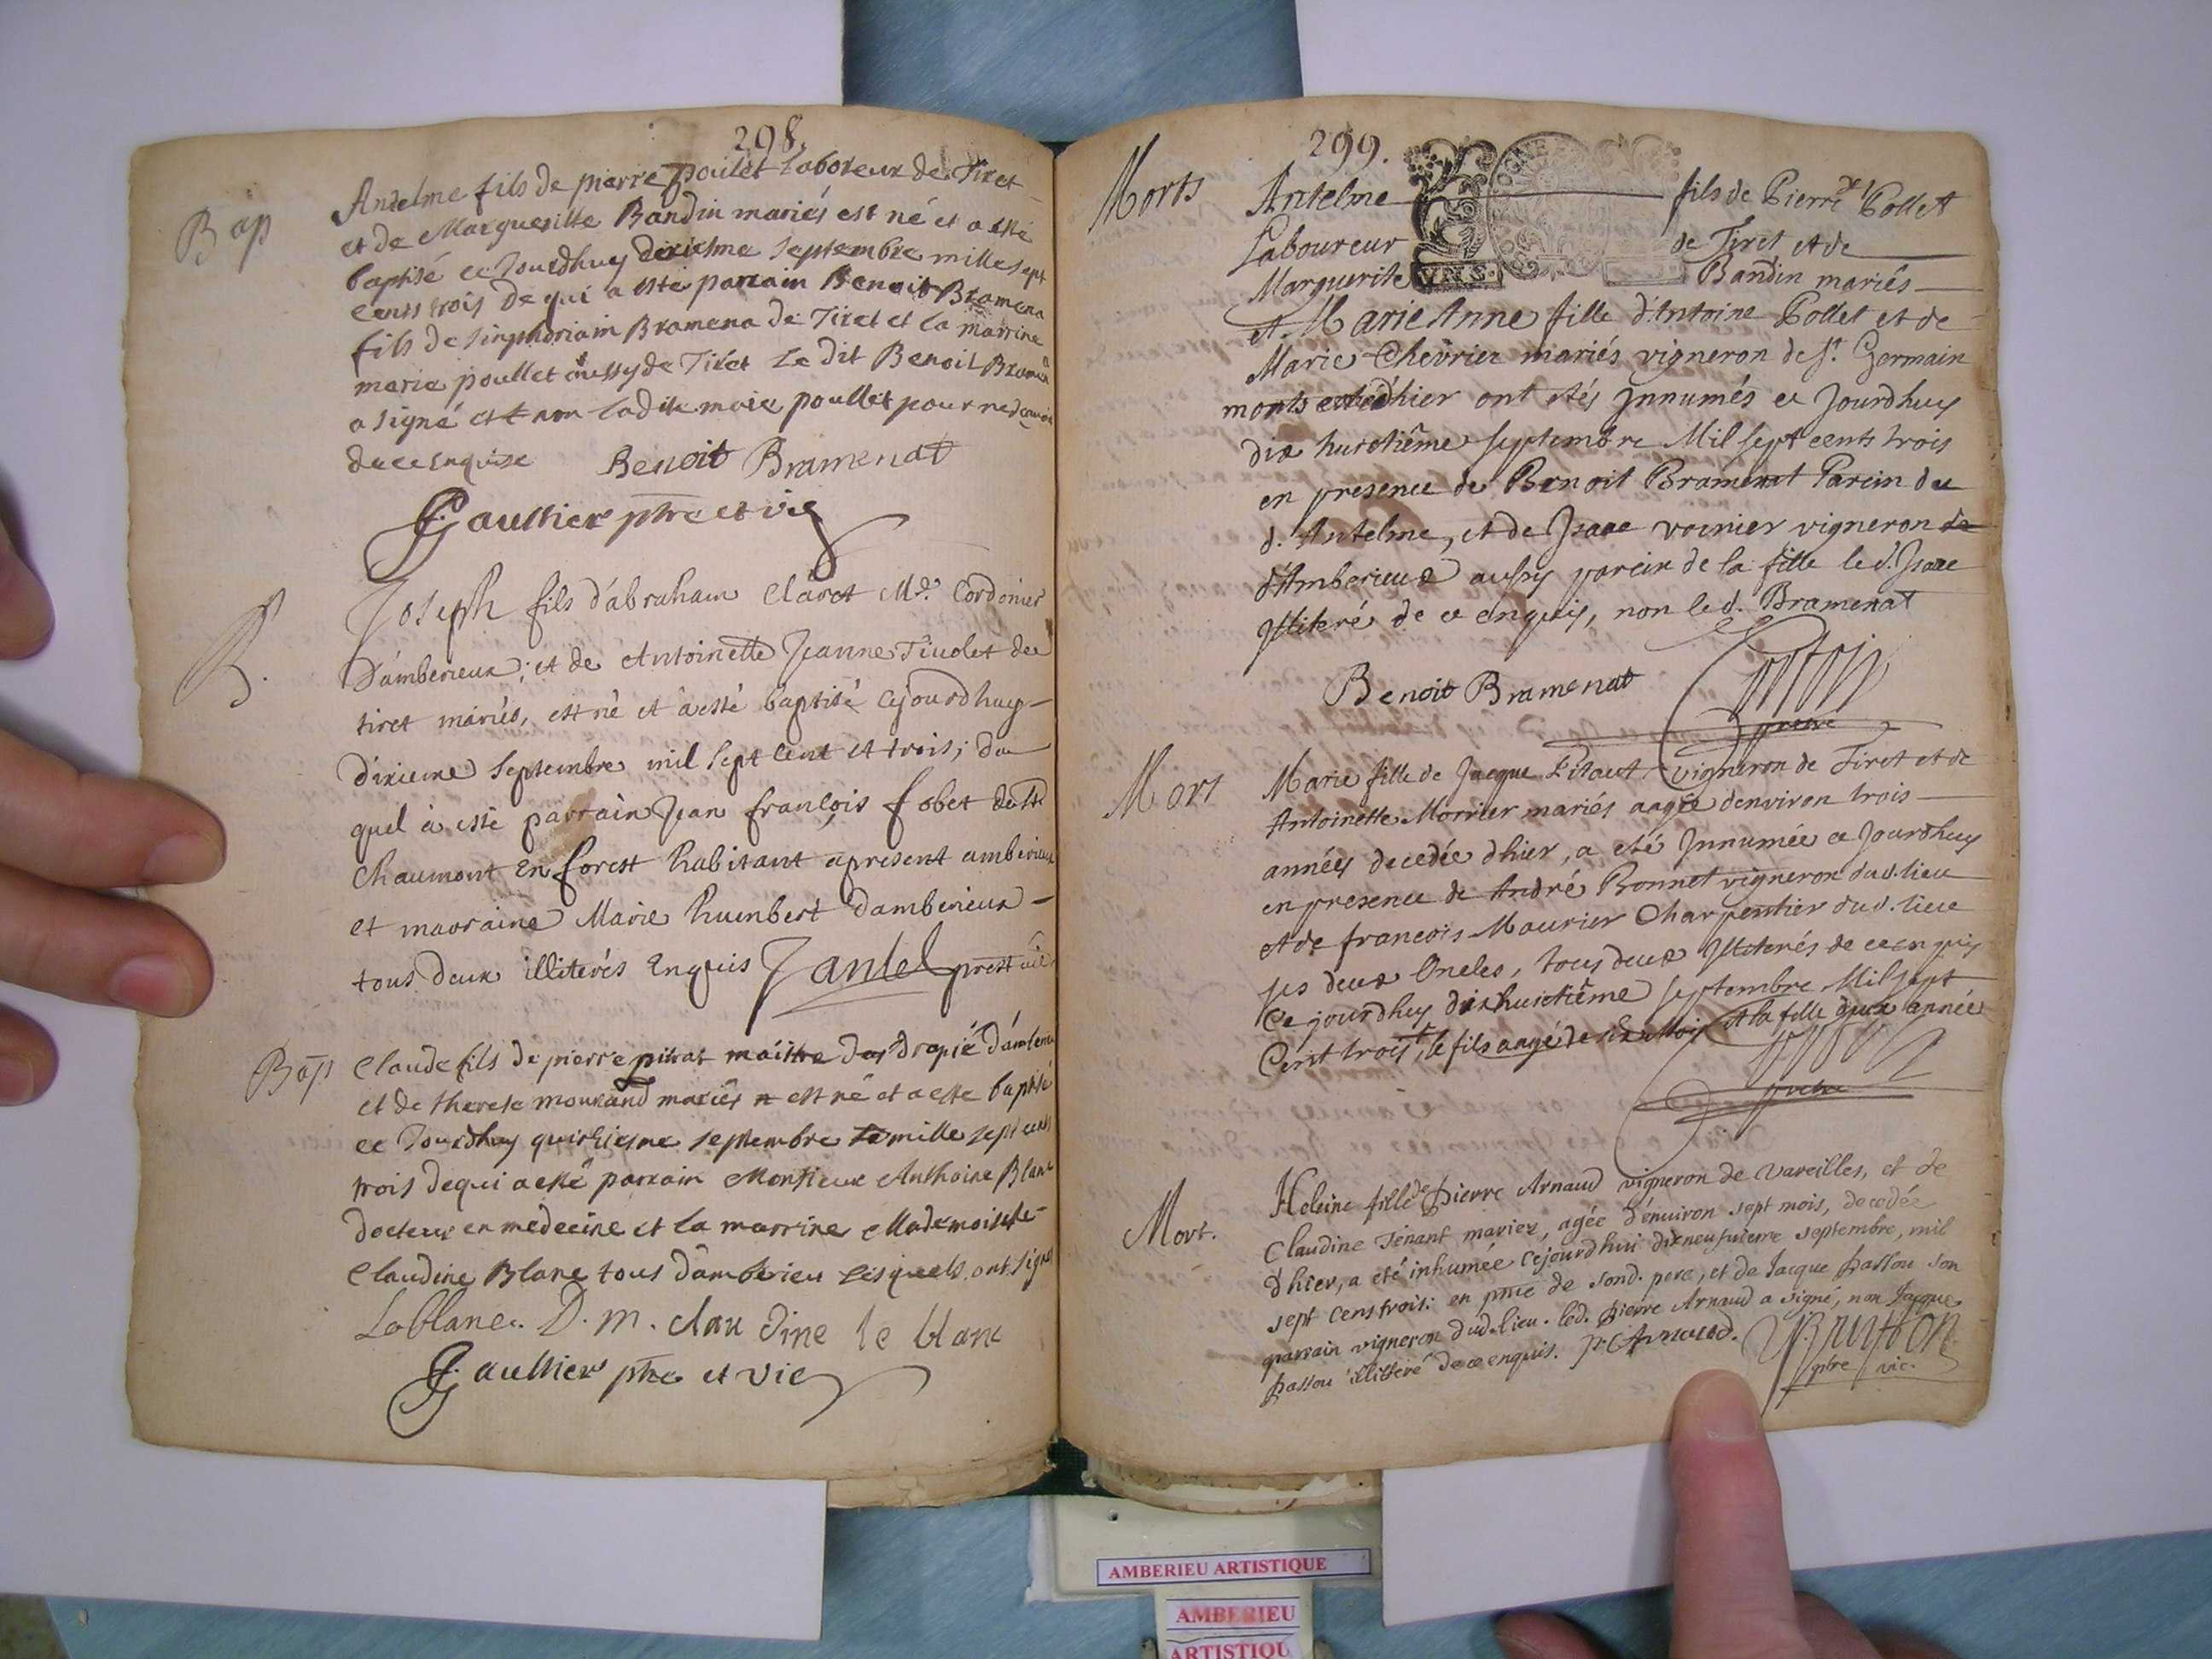 298.
Bap
Antelme fils de pierre poulet laboreur de Tiret
et de Margueritte Bandin mariés est né et a esté
baptisé ce Jourdhuy dixiesme septembre mille sept
cents trois de qui a esté parrain Benoit Bramena
fils de Bramena de Tiret et la marrine
marie poullet aussy de Tiret Le dit Benoit Bramena
a signé et non ladite marie poullet pour ne
de ce enquise Benoit Bramenat
Gaultier ptre et vic
B.
Joseph fils d'abraham Claret Md. Cordonier
D'amberieux; et de Antoinette Jeanne Tivolet de
tiret mariés, est né et à esté baptisé cejourdhuy
dixieme Septembre mil sept cent et trois; du
quel à esté parrain Jean françois fobet de St
Chaumont En forest habitant apresent amberieux
et marraine Marie humbert d'amberieux
tous deux illiterés Enquis Jantel prest vic
Bap
Claude fils de pierre pitat maistre drapié d'amberieu
et de therese mourand mariés est né et a este baptisé
ce Jourdhuy quinziesme septembre mille sept cents
trois de qui a esté parrain Monsieur Anthoine Blanc
docteur en medecine et la marrine Mademoiselle
Claudine Blanc tous d'amberieu Lesquels ont signé
Leblanc. D. m. clau dine le blanc
Gaultier ptre et vic
299.
Morts
Antelme fils de Pierre Pollet
Laboureur de Tiret et de
Marguerite Bandin mariés
et Marie Anne fille d'Antoine Pollet et de
Marie Chevrier mariés vigneron de St. Germain
morts d'hier ont etés Innumés ce Jourdhuy
dix huictiême septembre Mil sept cents trois
en presence de Benoit Bramenat Parein du
d. Antelme, et de Isaac voirier vigneron de
d'Amberieux aussy parein de la fille le d. Isaac
Illiteré de ce enquis, non le d. Bramenat
Benoit Bramenat
pretre
Mort
Marie fille de Jacque Pitaut vigneron de Tiret et de
Antoinette Morrier mariés aagée denviron trois
années decedée dhier, a eté Innumée ce Jourdhuy
en presence de André Bonnet vigneron dud. lieu
et de francois Maurier Charpentier dud. lieu
ses deux Oncles, tous deux Illiterés de ce enquis
Ce jourdhuy dixhuictiême septembre Mil sept
Cent trois, le fils aagé de six Mois et la fille d'une année
pretre
Mort.
Heleine fille de pierre Arnaud vigneron de vareilles, et de
Claudine Tenant mariez, agée d'environ sept mois, decedée
d'hier, a eté inhumée cejourdhui dixneufuieme septembre, mil
sept cens trois: en pnce de sond. pere, et de Jacque passou son
parrain vigneron dud. lieu. led. pierre Arnaud a signé, non Jacque
passou illitteré de ce enquis. P. Arnaud. Brunon
pbre vic.
AMBERIEU ARTISTIQUE
AMBERIEU
ARTISTIQU